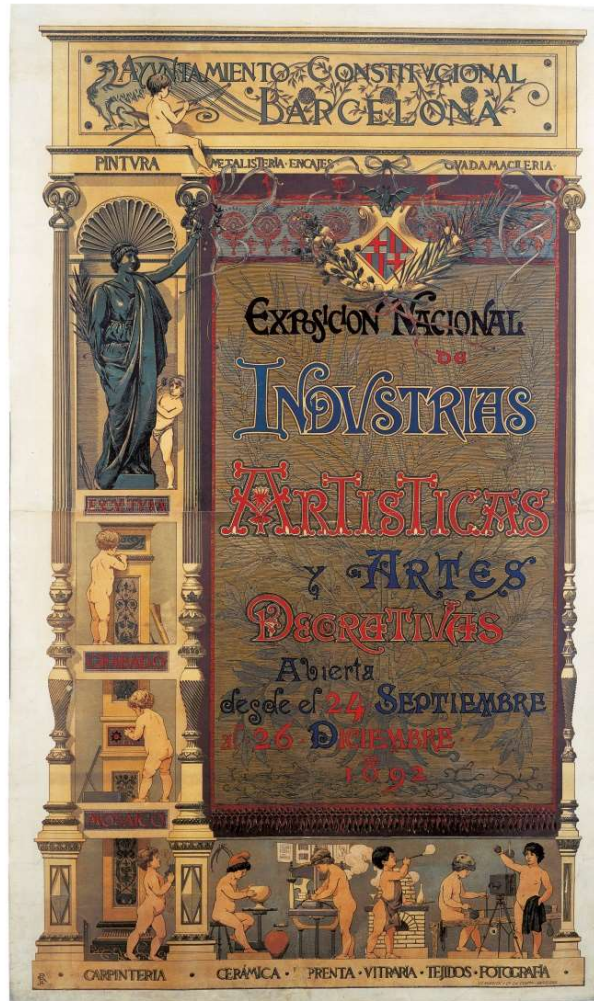 AYVNTAMIENTO CONSTITVCIONAL
BARCELONA
PINTVRA
METALISTERIA · ENCAJES
GVADAMACILERIA ·
EXPOSICION NACIONAL
DE
INDVSTRIAS
ARTISTICAS
Y ARTES
DECORATIVAS
Abierta
desde el 24 SEPTIEMBRE
al 26 DICIEMBRE
DE
1892
ESCVLTVRA
GRABADO
MOSAICO
· CARPINTERIA · CERÁMICA · PRENTA · VITRARIA · TEJIDOS · FOTOGRAFIA ·